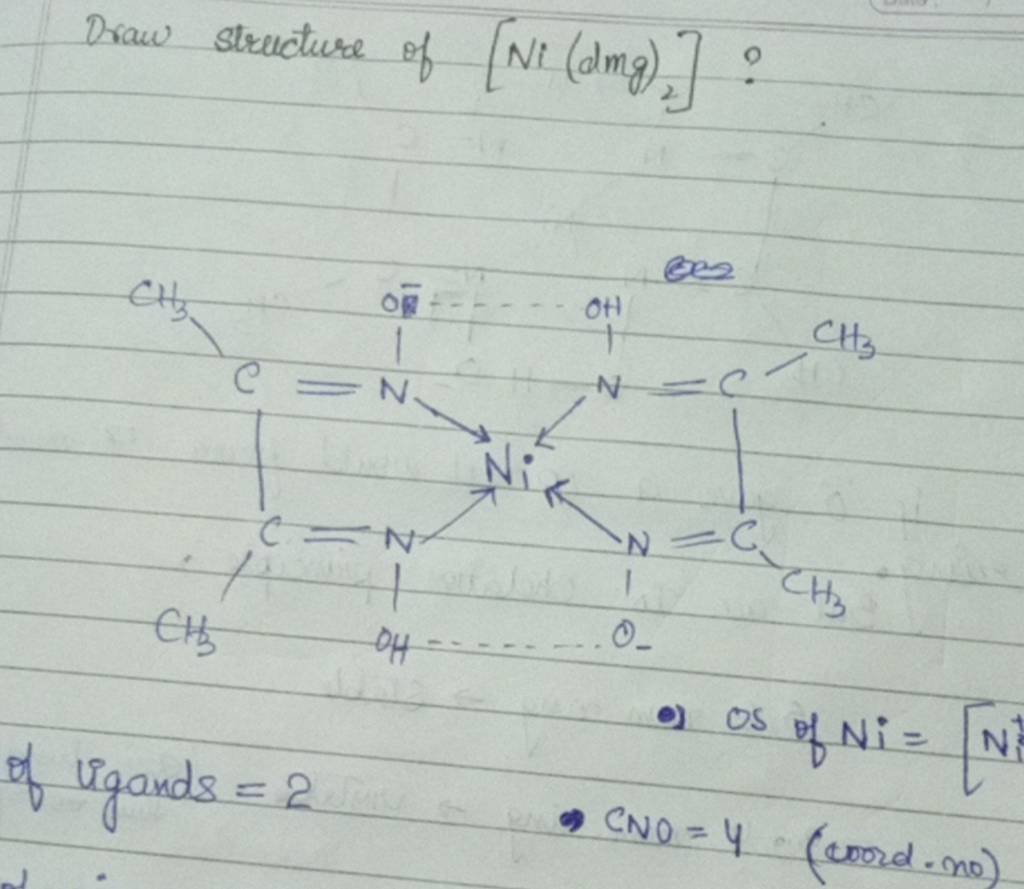 Draw structure of [Ni (dmg)₂] ?
CH₃ O⁻ - - - - - - OH CH₃
C = N N = C
Ni
C = N N = C
CH₃ OH - - - - - - - O- CH₃
OS of Ni = [Ni
of ligands = 2
CNO = 4 (coord. no)